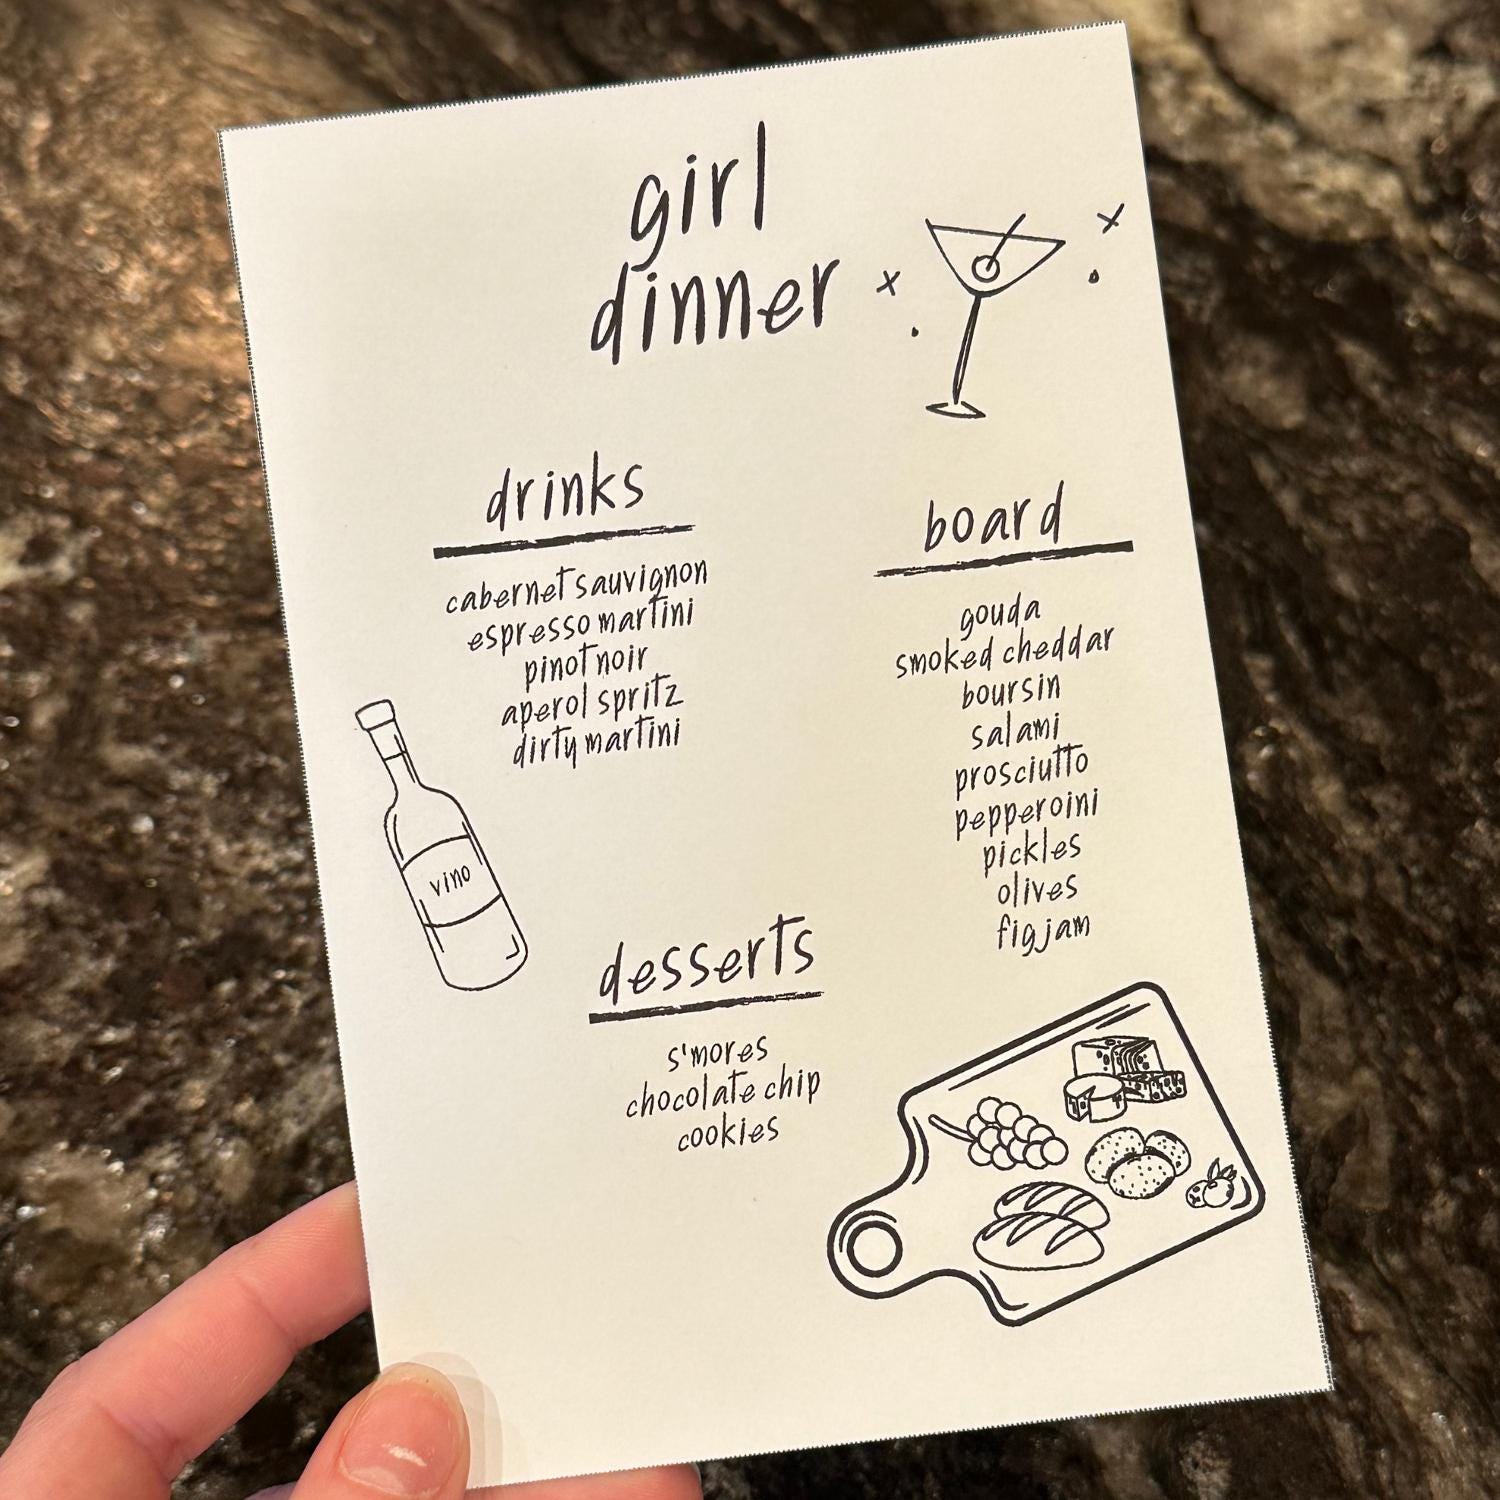 girl
dinner
drinks
cabernet sauvignon
espresso martini
pinot noir
aperol spritz
dirty martini
vino
board
gouda
smoked cheddar
boursin
salami
prosciutto
pepperoini
pickles
olives
fig jam
desserts
s'mores
chocolate chip
cookies